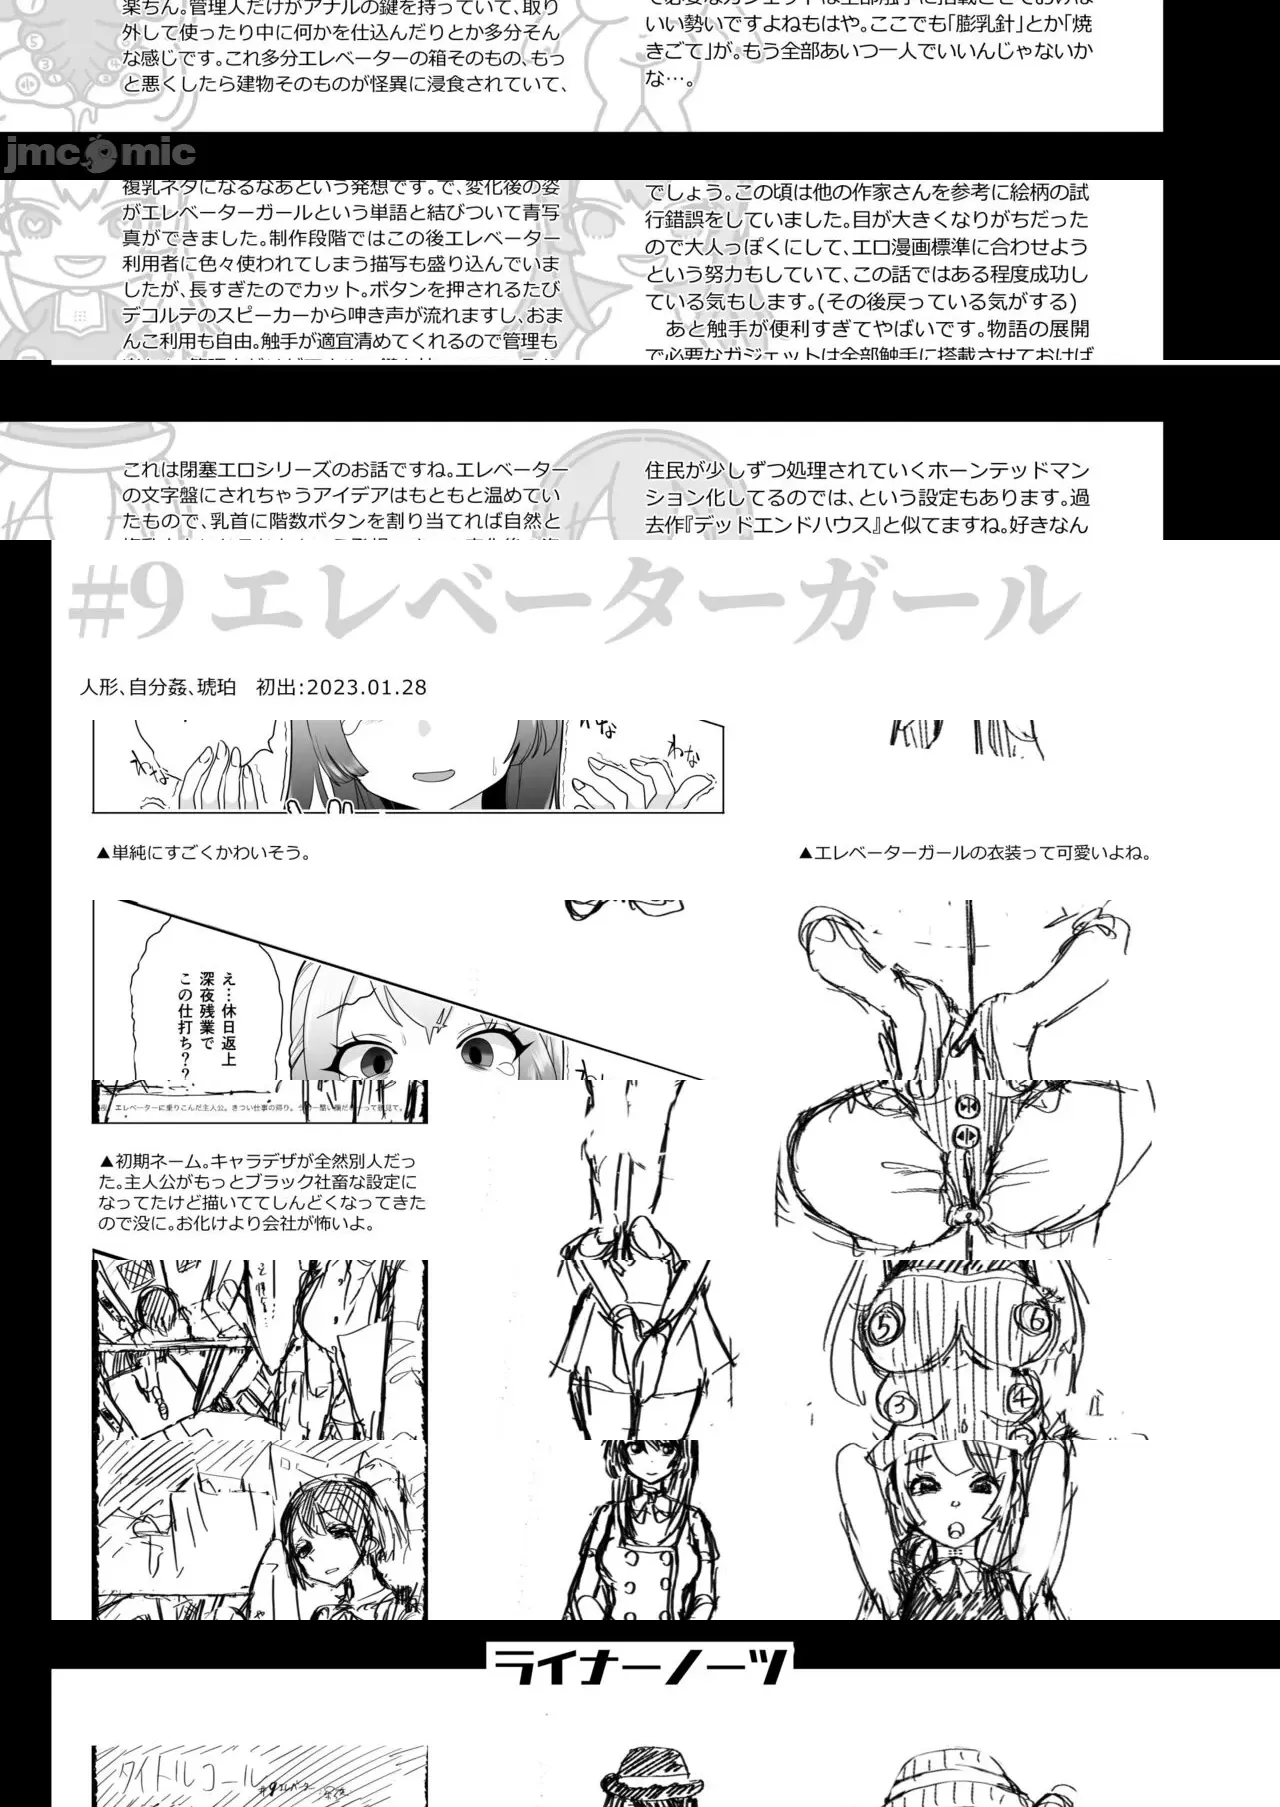 楽ちん。管理人だけがアナルの鍵を持っていて、取り
外して使ったり中に何かを仕込んだりとか多分そん
な感じです。これ多分エレベーターの箱そのもの、もっ
と悪くしたら建物そのものが怪異に浸食されていて、
いい勢いですよねもはや。ここでも「膨乳針」とか「焼
きごて」が。もう全部あいつ一人でいいんじゃないか
な…。
jmcomic
複乳ネタになるなあという発想です。で、変化後の姿
がエレベーターガールという単語と結びついて青写
真ができました。制作段階ではこの後エレベーター
利用者に色々使われてしまう描写も盛り込んでいま
したが、長すぎたのでカット。ボタンを押されるたび
デコルテのスピーカーから呻き声が流れますし、おま
んこ利用も自由。触手が適宜清めてくれるので管理も
でしょう。この頃は他の作家さんを参考に絵柄の試
行錯誤をしていました。目が大きくなりがちだった
ので大人っぽくにして、エロ漫画標準に合わせよう
という努力もしていて、この話ではある程度成功し
ている気もします。(その後戻っている気がする)
あと触手が便利すぎてやばいです。物語の展開
で必要なガジェットは全部触手に搭載させておけば
これは閉塞エロシリーズのお話ですね。エレベーター
の文字盤にされちゃうアイデアはもともと温めてい
たもので、乳首に階数ボタンを割り当てれば自然と
住民が少しずつ処理されていくホーンテッドマン
ション化してるのでは、という設定もあります。過
去作『デッドエンドハウス』と似てますね。好きなん
#9 エレベーターガール
人形、自分姦、琥珀 初出:2023.01.28
わな
わな
わな
▲単純にすごくかわいそう。
▲エレベーターガールの衣装って可愛いよね。
え…休日返上
深夜残業で
この仕打ち??
エレベーターに乗りこんだ主人公。きつい仕事の帰り。
▲初期ネーム。キャラデザが全然別人だっ
た。主人公がもっとブラック社畜な設定に
なってたけど描いててしんどくなってきた
ので没に。お化けより会社が怖いよ。
5
6
3
4
ライナーノーツ
タイトルコール
#9エレベーター